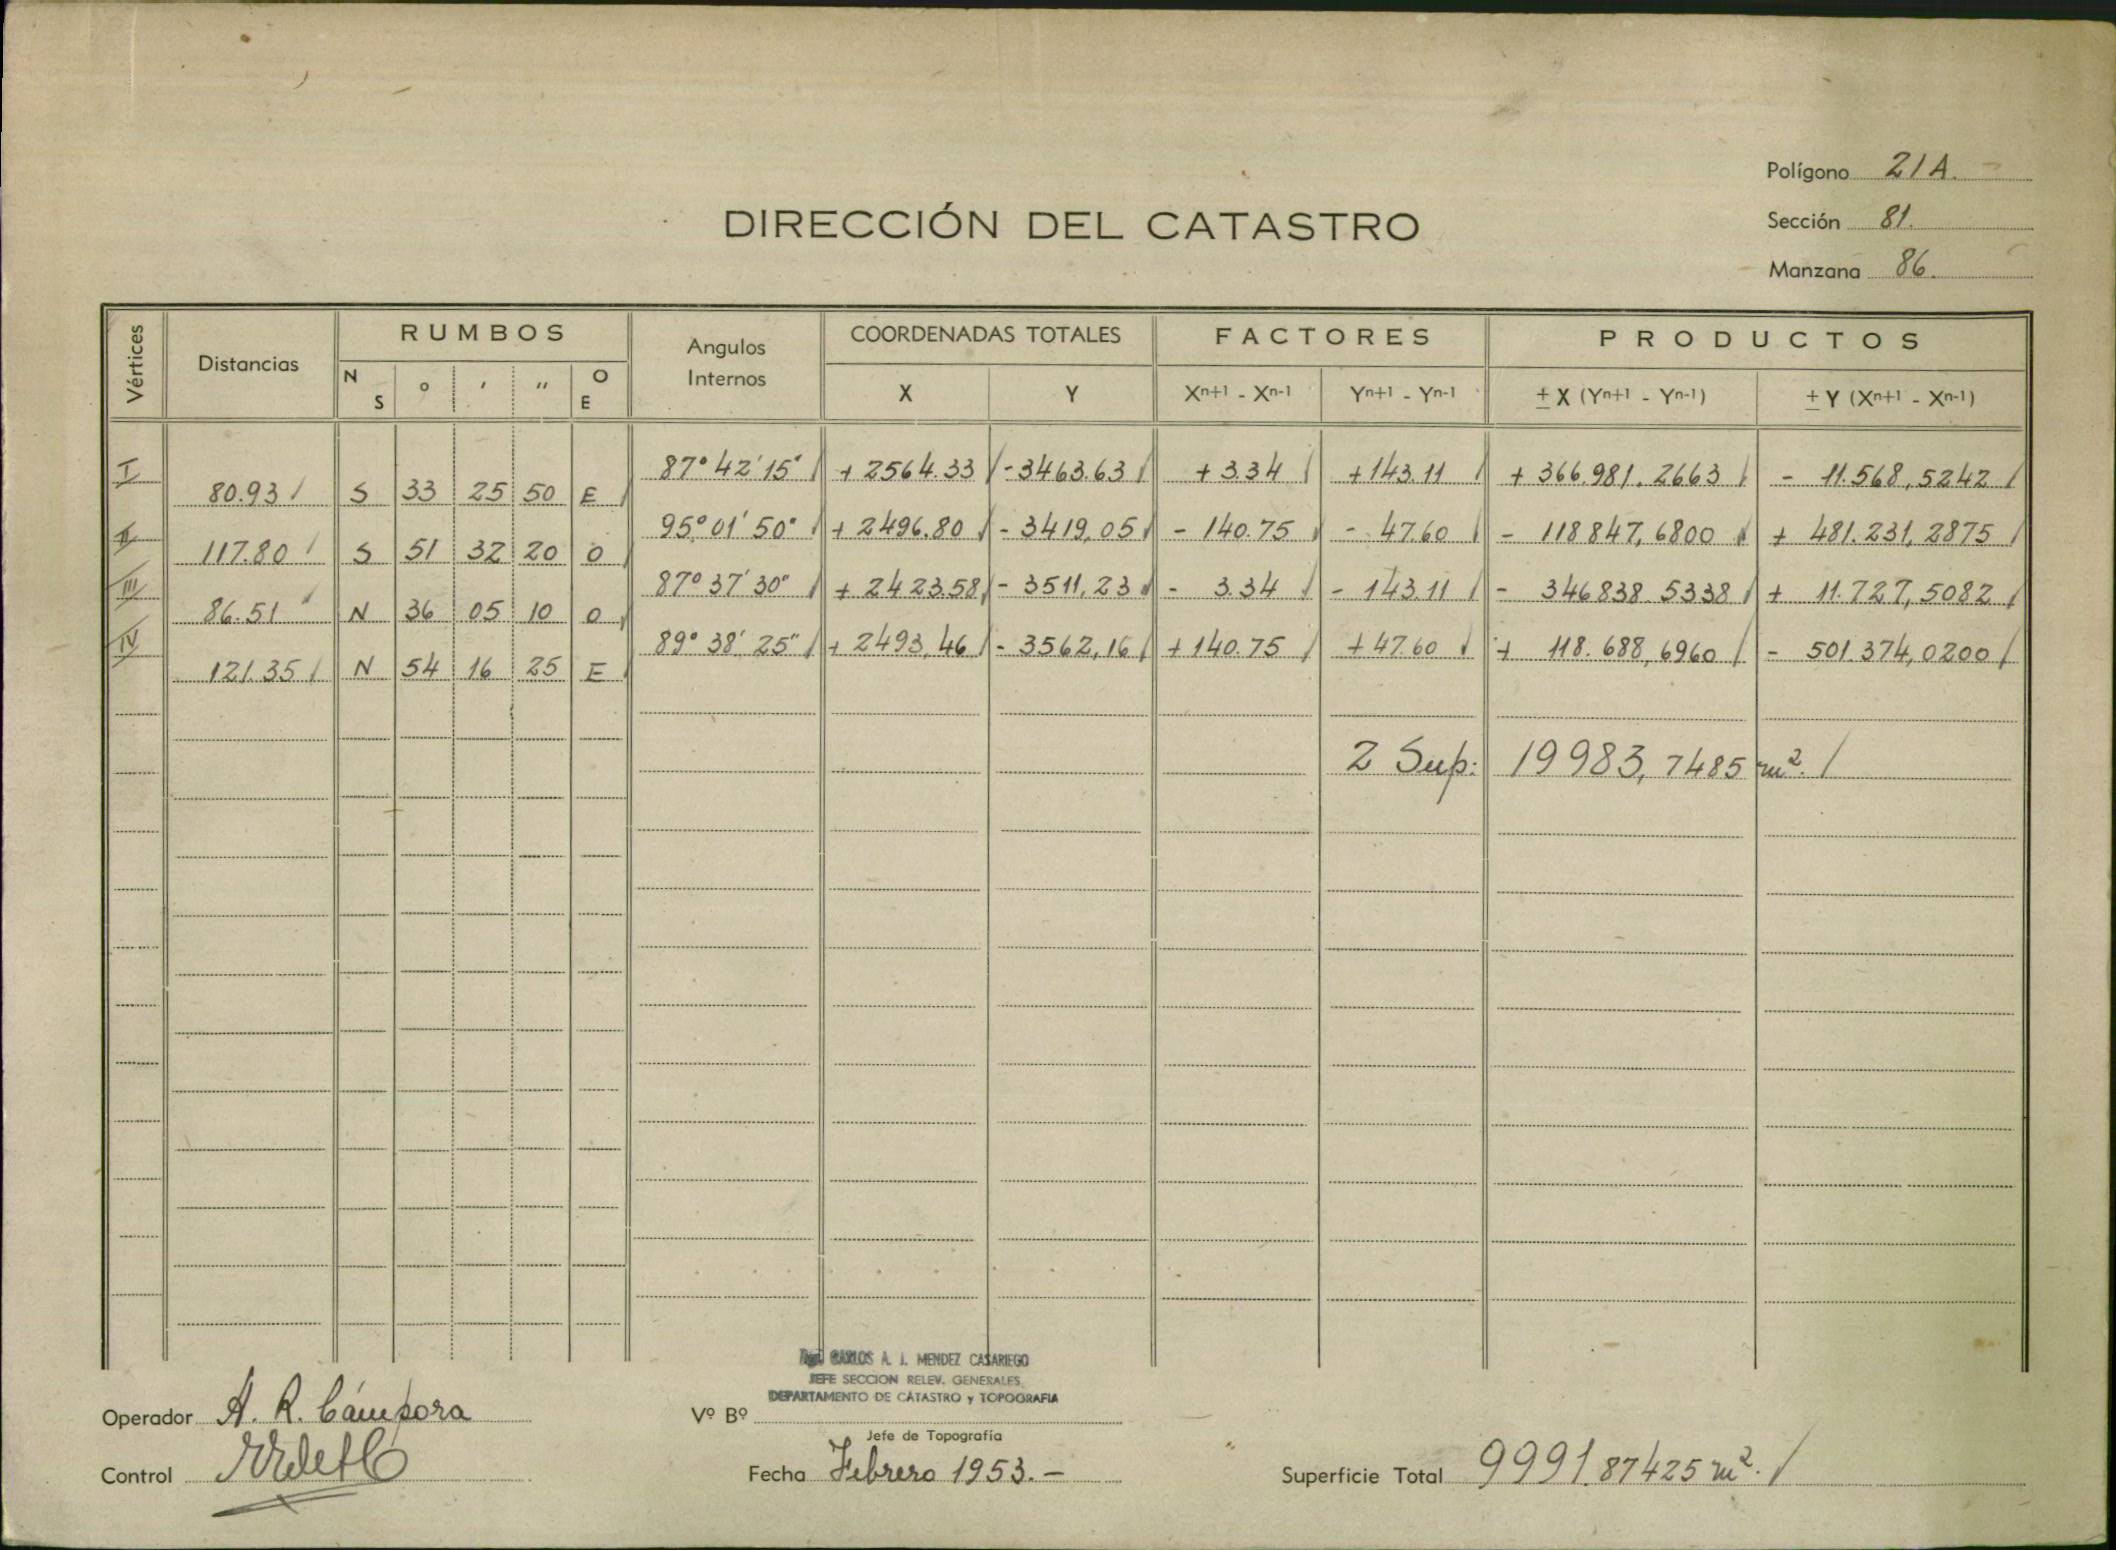 Polígono 21A.
DIRECCIÓN DEL CATASTRO
Sección 81.
Manzana 86.
Vértices Distancias RUMBOS Angulos Internos COORDENADAS TOTALES FACTORES PRODUCTOS
N S ° ' " O E X Y Xn+1 - Xn-1 Yn+1 - Yn-1 ± X (Yn+1 - Yn-1) ± Y (Xn+1 - Xn-1)
I 87° 42' 15" + 2564.33 - 3463.63 + 3.34 + 143.11 + 366.981.2663 - 11.568,5242
80.93 S 33 25 50 E
II 95° 01' 50" + 2496.80 - 3419,05 - 140.75 - 47.60 - 118847,6800 + 481.231,2875
117.80 S 51 32 20 O
III 87° 37' 30" + 2423.58 - 3511,23 - 3.34 - 143.11 - 346838.5338 + 11.727,5082
86.51 N 36 05 10 O
IV 89° 38' 25" + 2493,46 - 3562,16 + 140.75 + 47.60 + 118.688,6960 - 501.374,0200
121.35 N 54 16 25 E
2 Sup: 19983,7485 m².
CARLOS A. J. MENDEZ CASARIEGO
JEFE SECCION RELEV. GENERALES
DEPARTAMENTO DE CATASTRO y TOPOGRAFIA
Operador A. R. Cámpora
Vº Bº
Jefe de Topografía
Control
Fecha Febrero 1953.-
Superficie Total 9991.87425 m².